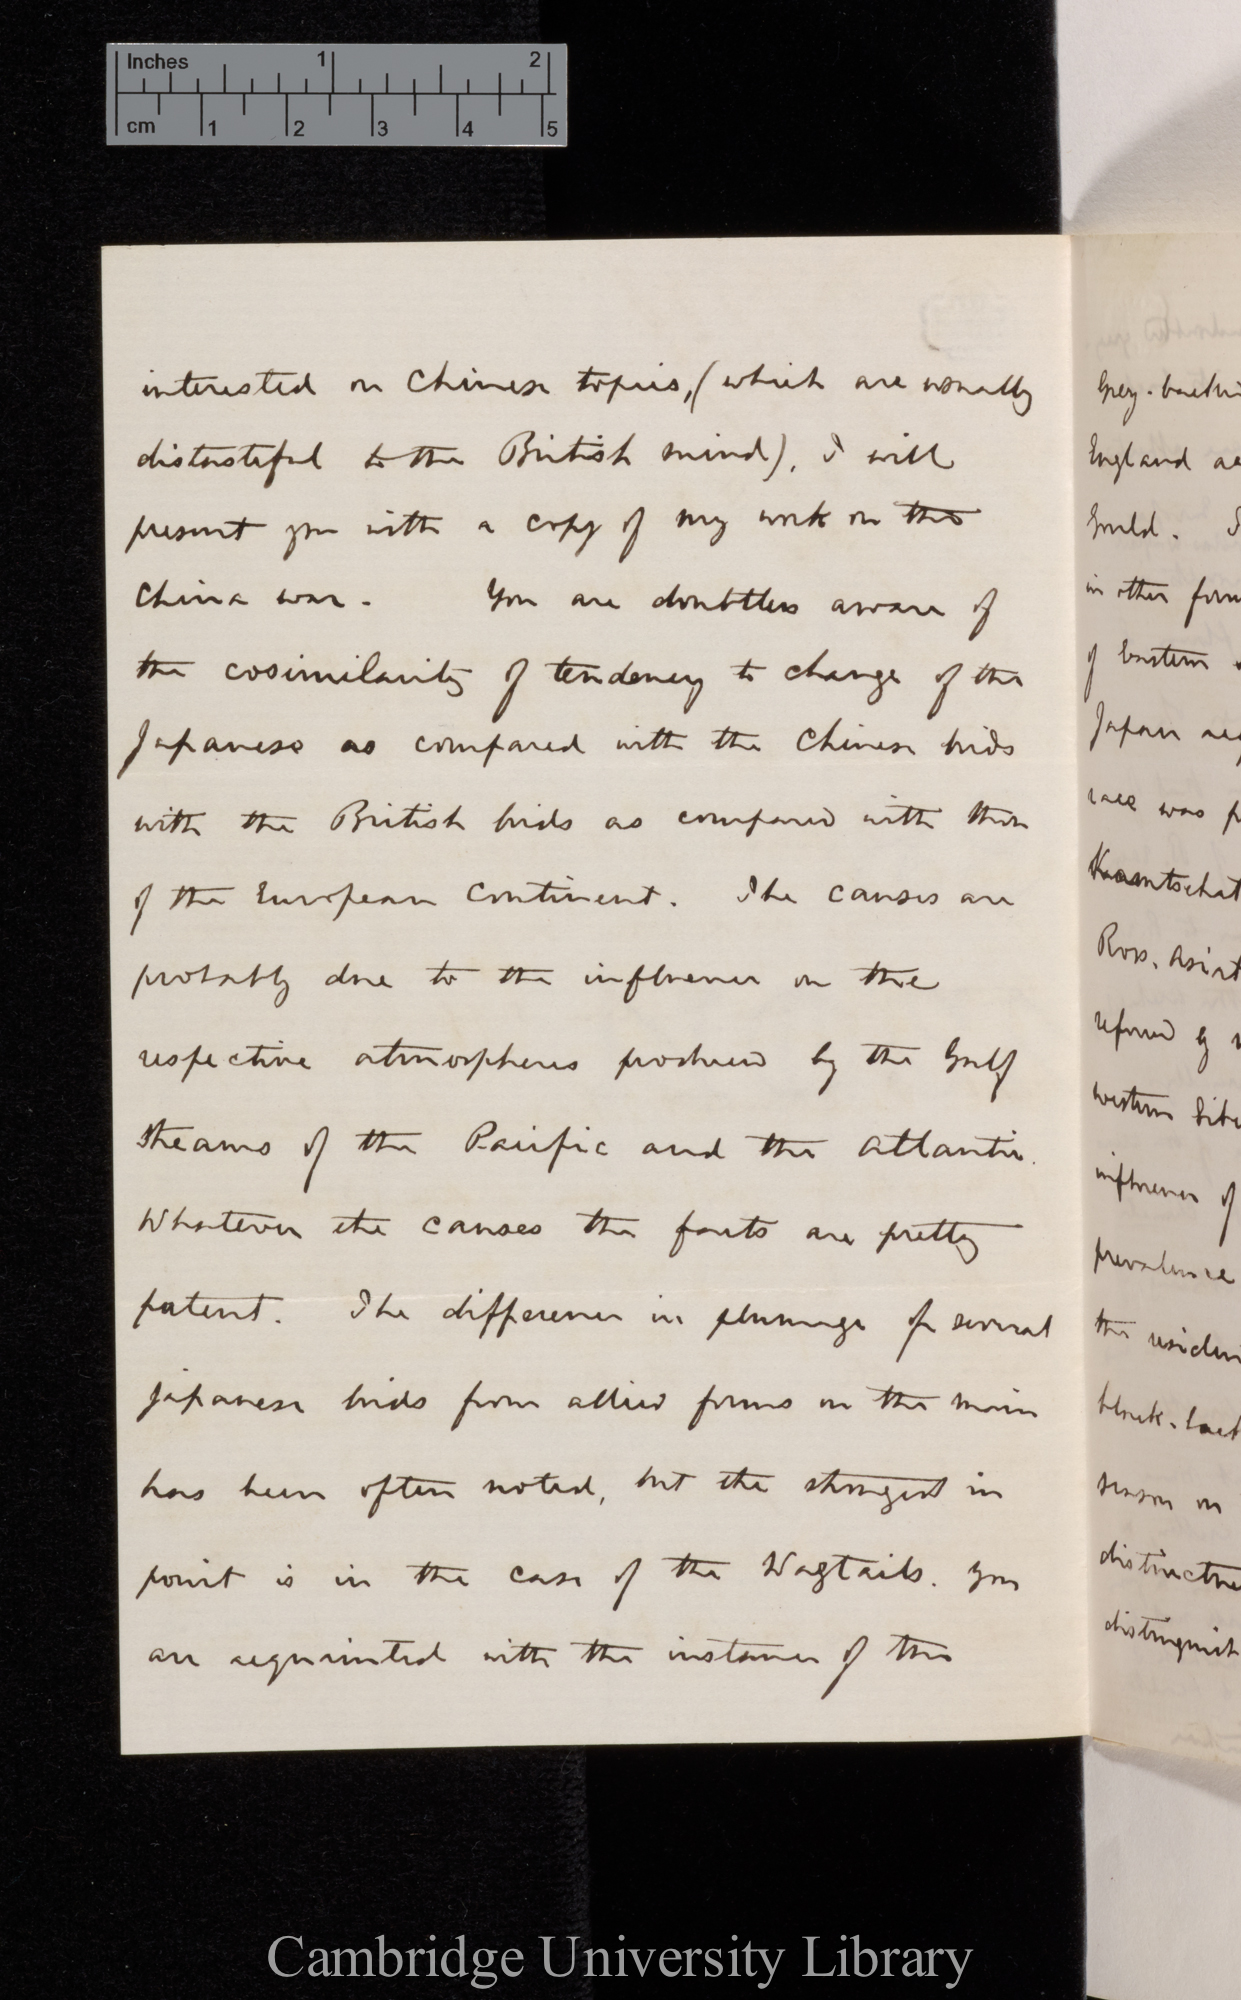 Inches 1 2
cm 1 2 3 4 5
interested on Chinese topics, (which are usually
distasteful to the British mind), I will
present you with a copy of my work on the
China war. You are doubtless aware of
the cosimilarity of tendency to change of the
Japanese as compared with the Chinese birds
with the British birds as compared with those
of the European Continent. The causes are
probably due to the influence on the
respective atmospheres produced by the Gulf
Streams of the Pacific and the Atlantic.
Whatever the causes the facts are pretty
patent. The difference in plumage of several
Japanese birds from allied forms on the main
has been often noted, but the strongest in
point is in the case of the Wagtails. You
are acquainted with the instance of the
Grey-backe
England a
Gould.
in other for
of Eastern
Japan
race was
Kamtschat
Ross. Asiat
referred by
western Sibe
influence of
prevalence
the residen
black-back
season on
distinctne
distinguish
Cambridge University Library